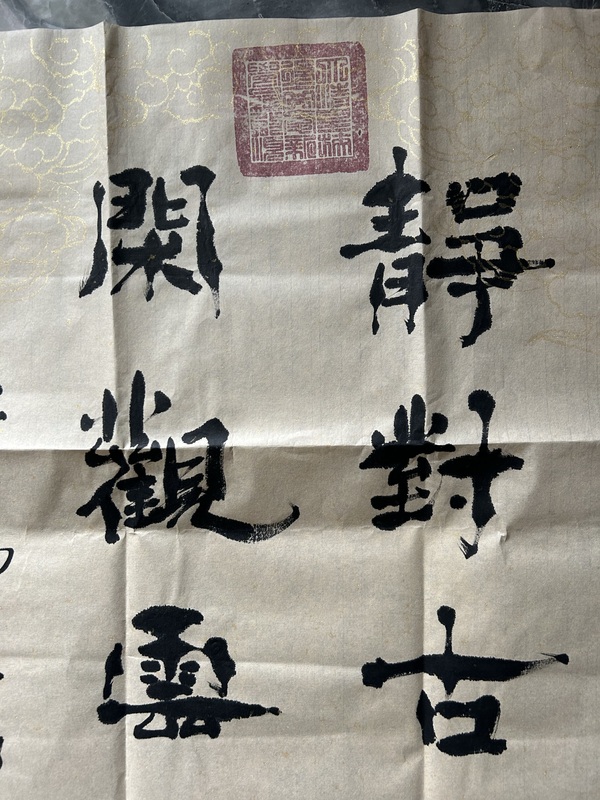 靜對古
閑觀雲